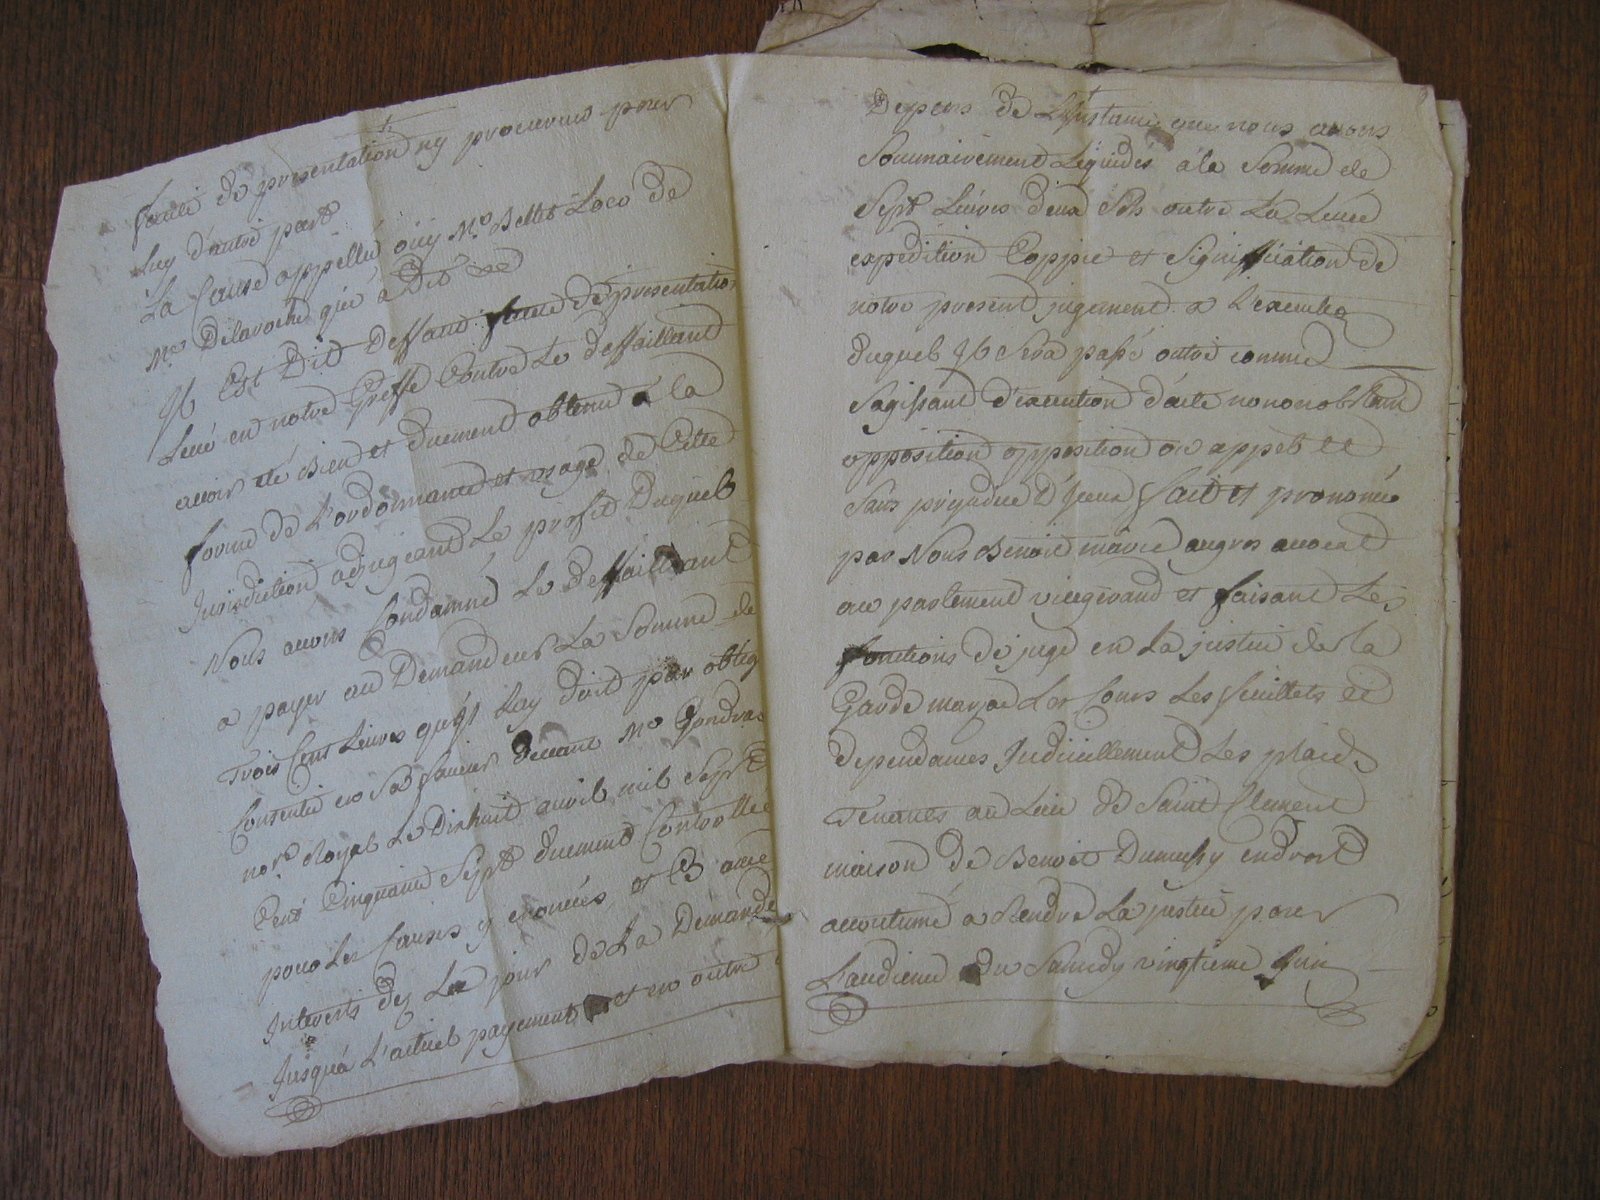 faute de presentation ny procureur pour
Luy d'autre part
La Cause appellée ouy Me. Bellet Loco de
Me Delaroche qui a Dit &c
Il Est Dit Deffaut faute de presentation
Levé en notre Greffe Contre Le deffaillant
avoir été Bien et duement obtenu a la
forme de L'ordonnance et usage de Cette
Jurisdiction adjugeant Le profit Duquel
Nous avons Condamné Le Deffaillant
a payer au Demandeur La Somme de
Trois Cent Livres qu'il Luy doit par oblig
Consentie en Sa faveur devant Me
nore. Royal Le Dixhuit avril mil Sept
Cent Cinquante Sept duement Controllée
pour Les Causes y enoncées et Ce avec
Interets dez Le jour de La Demande
Jusqu'a L'actuel payement et en outre
Depens de L'Instance que nous avons
Sommairement Liquidés a la Somme de
Sept Livres deux Sols outre La Levée
expedition Coppie et Signiffication de
notre present jugement a L'execution
duquel Il Sera passé outre comme
Sagissant d'execution d'acte nononobstant
opposition opposition ou appel et
Sans prejudice D'Iceux fait et prononcé
par Nous Benoit marie augros avocat
au parlement vicegerand et faisant Les
fonctions de juge en La justice de la
Garde Les Cours Les feuillets et
dependances Judiciellement Les plaids
Tenants au Lieu de Saint Clement
maison de Benoit endroit
accoutumé a Rendre La justice pour
L'audience du Samedy vingtieme Juin